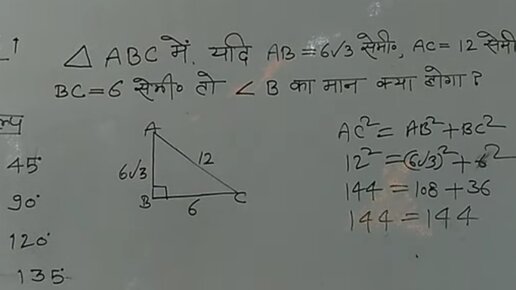 △ ABC में, यदि AB = 6√3 सेमी०, AC = 12 सेमी
BC = 6 सेमी० तो ∠B का मान क्या होगा?
45°
90°
120°
135°
A
6√3
12
B
6
C
AC² = AB² + BC²
12² = (6√3)² + 6²
144 = 108 + 36
144 = 144